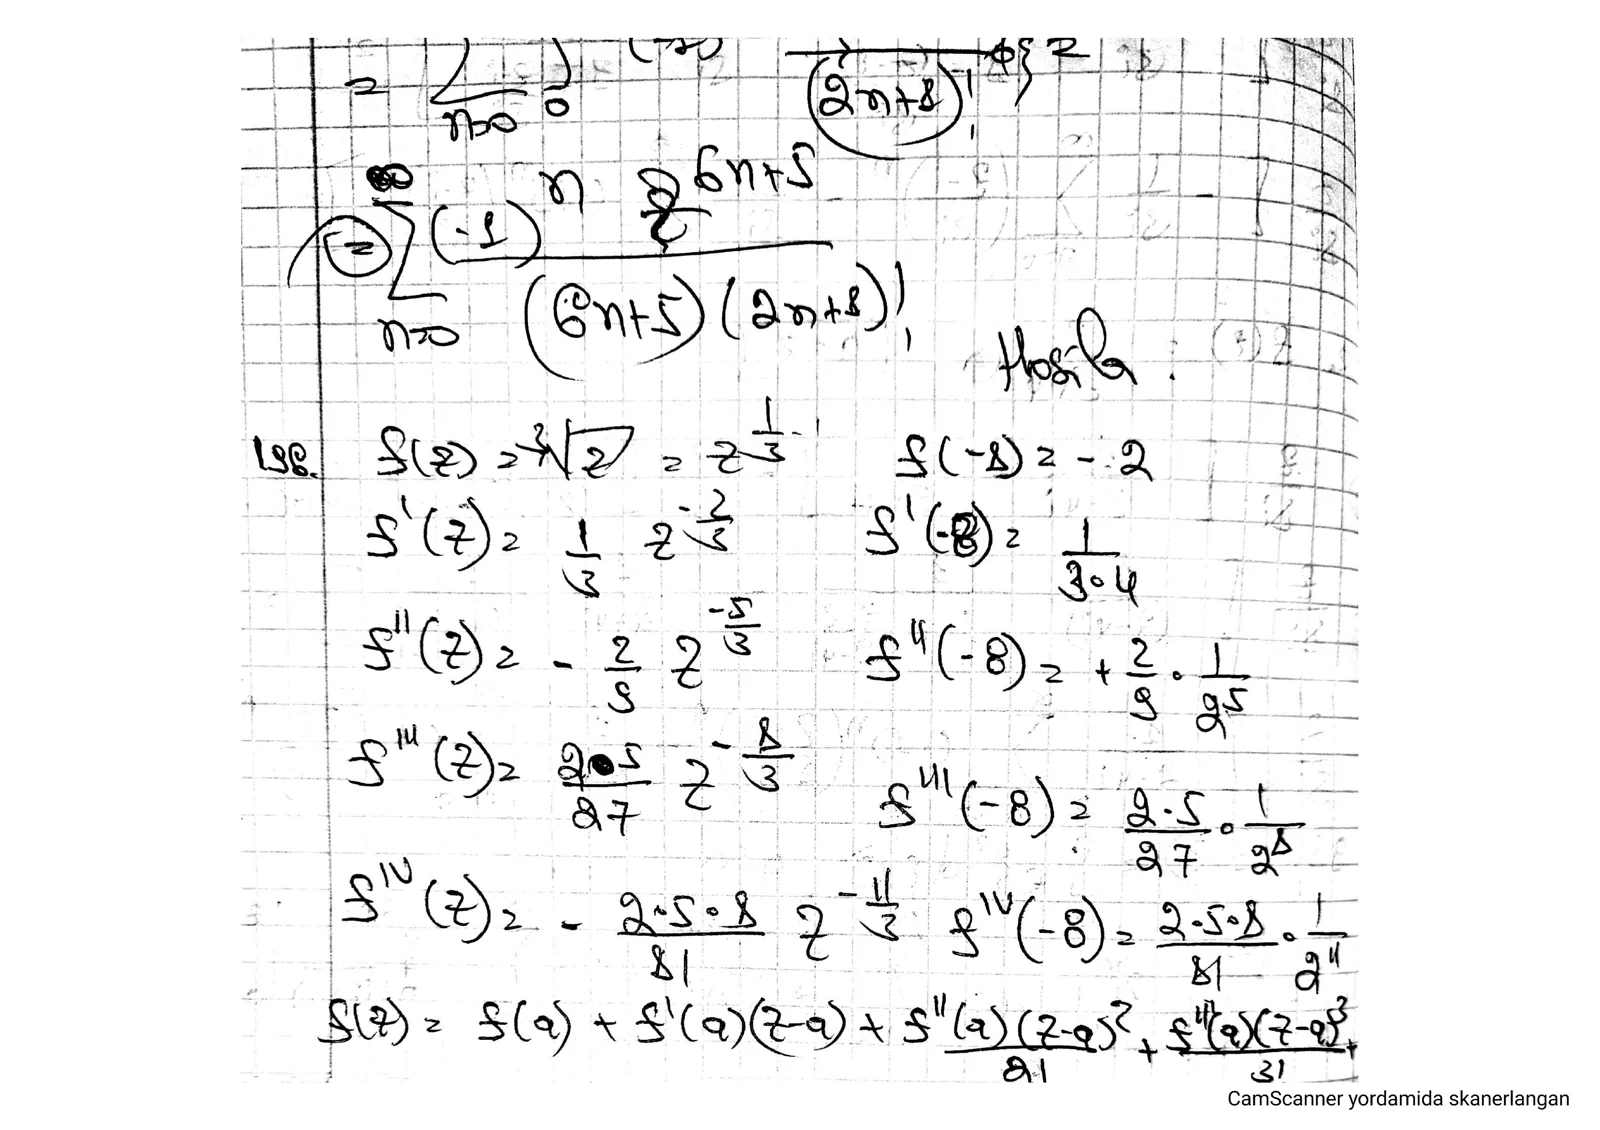 = ∑ n=0 ∫ 0 (2n+1)! } =
= ∑ n=0 ∞ (-1)^n z^{6n+5} / (6n+5)(2n+1)!
Hosila :
196. f(z) = ∛z = z^{1/3} f(-8) = -2
f'(z) = 1/3 z^{-2/3} f'(-8) = 1/(3·4)
f''(z) = - 2/9 z^{-5/3} f''(-8) = + 2/9 · 1/2^5
f'''(z) = 2·5/27 z^{-8/3} f'''(-8) = 2·5/27 · 1/2^8
f^{IV}(z) = - 2·5·8/81 z^{-11/3} f^{IV}(-8) = 2·5·8/81 · 1/2^{11}
f(z) = f(a) + f'(a)(z-a) + f''(a)(z-a)^2/2! + f'''(a)(z-a)^3/3! +
CamScanner yordamida skanerlangan